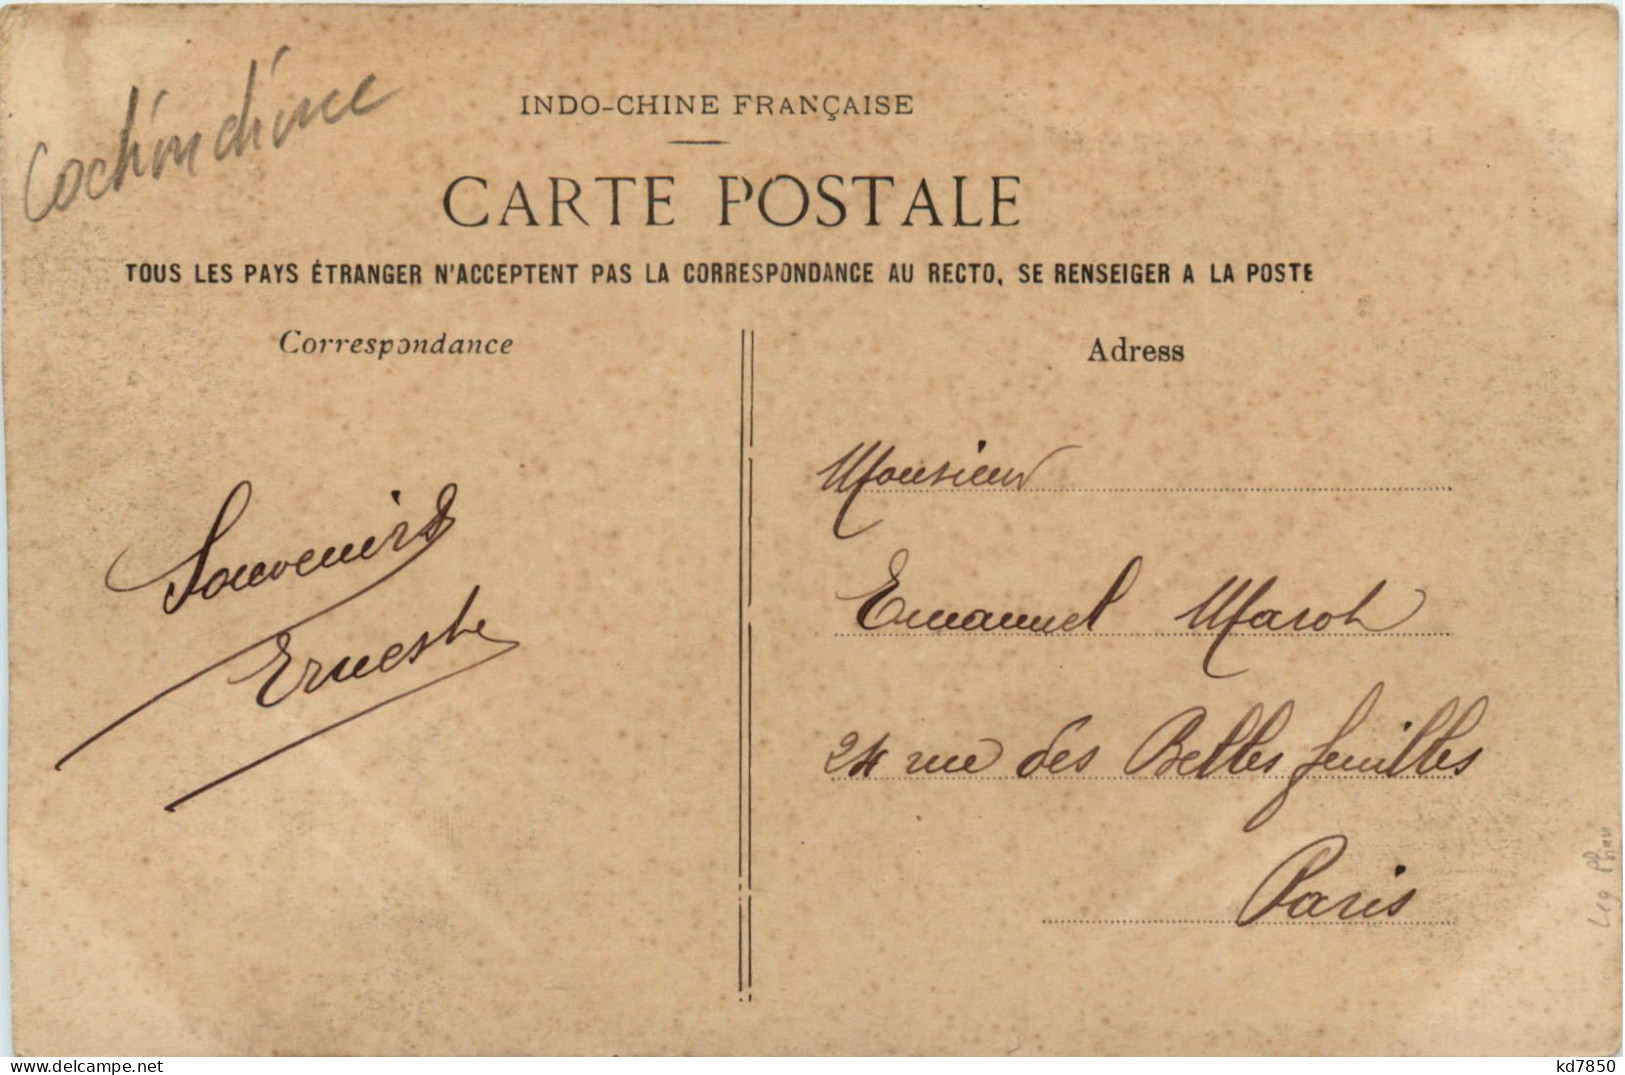 Cochinchine
INDO-CHINE FRANÇAISE
CARTE POSTALE
TOUS LES PAYS ÉTRANGER N'ACCEPTENT PAS LA CORRESPONDANCE AU RECTO, SE RENSEIGER A LA POSTE
Correspondance
Adress
Souvenirs
Ernest
Monsieur
Emanuel Marot
24 rue des Belles feuilles
Paris
www.delcampe.net
kd7850